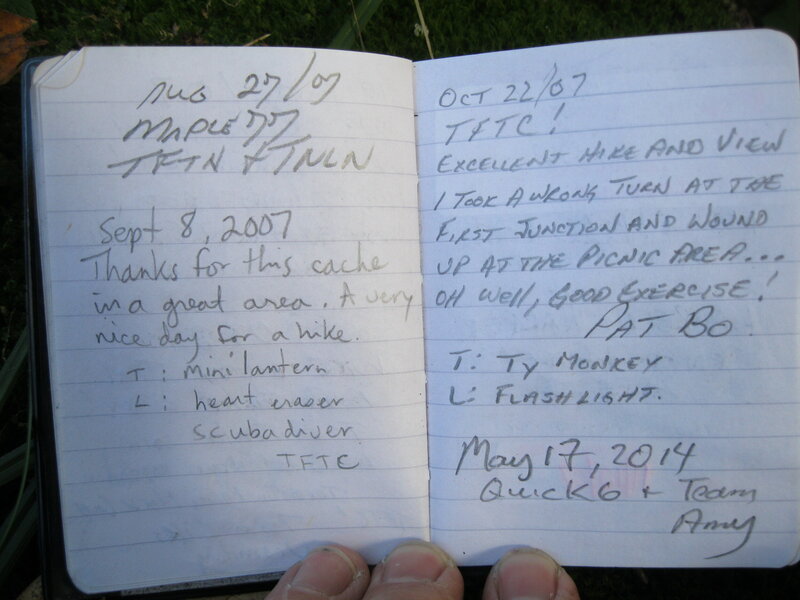 AUG 27/07
MAPLE 77
TFTN & TNLN
Sept 8, 2007
Thanks for this cache
in a great area. A very
nice day for a hike.
T : mini lantern
L : heart eraser
scuba diver
TFTC
OCT 22/07
TFTC!
EXCELLENT HIKE AND VIEW
I TOOK A WRONG TURN AT THE
FIRST JUNCTION AND WOUND
UP AT THE PICNIC AREA...
OH WELL, GOOD EXERCISE!
PAT BO
T: TY MONKEY
L: FLASHLIGHT.
May 17, 2014
Quick6 + Team
Amy